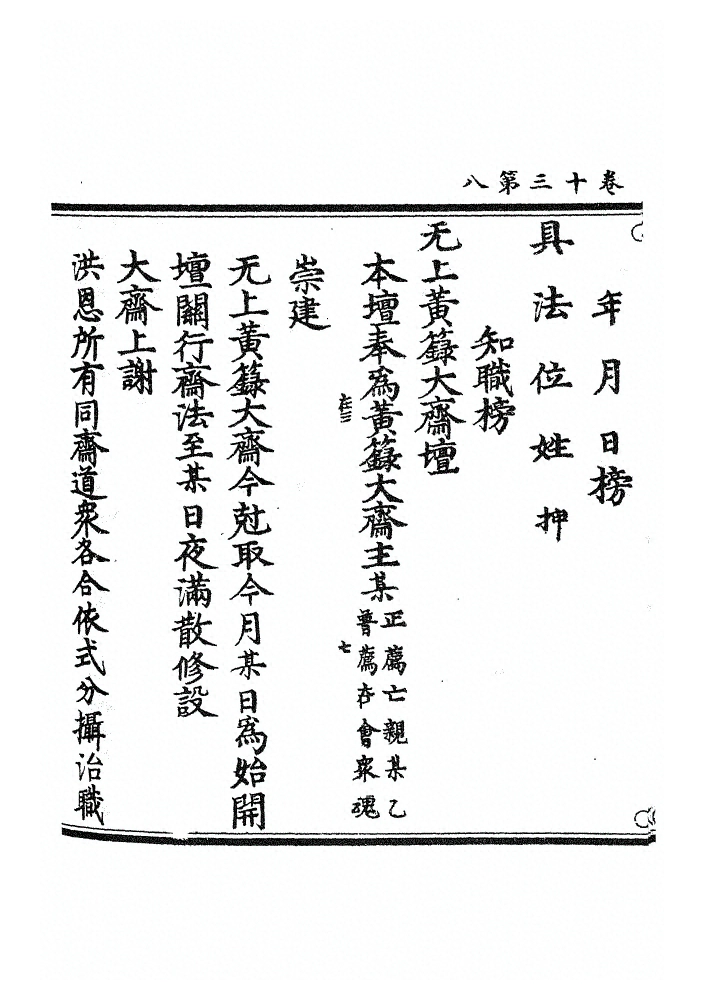 卷十三第八
年月日榜
具法位姓押
知職榜
无上黃籙大齋壇
本壇奉爲黃籙大齋主某正薦亡親某乙
普薦存會衆魂
崇建
无上黃籙大齋今尅取今月某日爲始開
壇關行齋法至某日夜滿散修設
大齋上謝
洪恩所有同齋道衆各合依式分攝治職
七